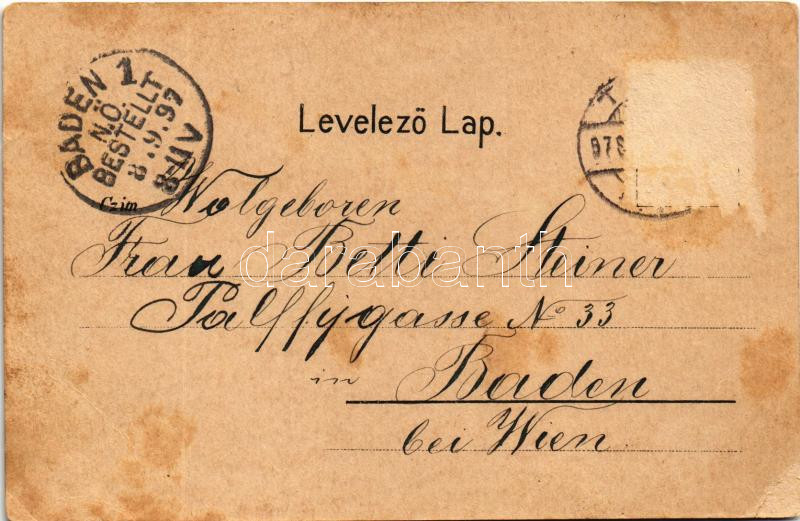 BADEN 1
N.Ö.
BESTELLT
8.9.97
8-11V
Levelező Lap.
978
Czim
Wolgeboren
Frau Betti Steiner
Palffygasse No 33
in Baden
bei Wien
darabanth